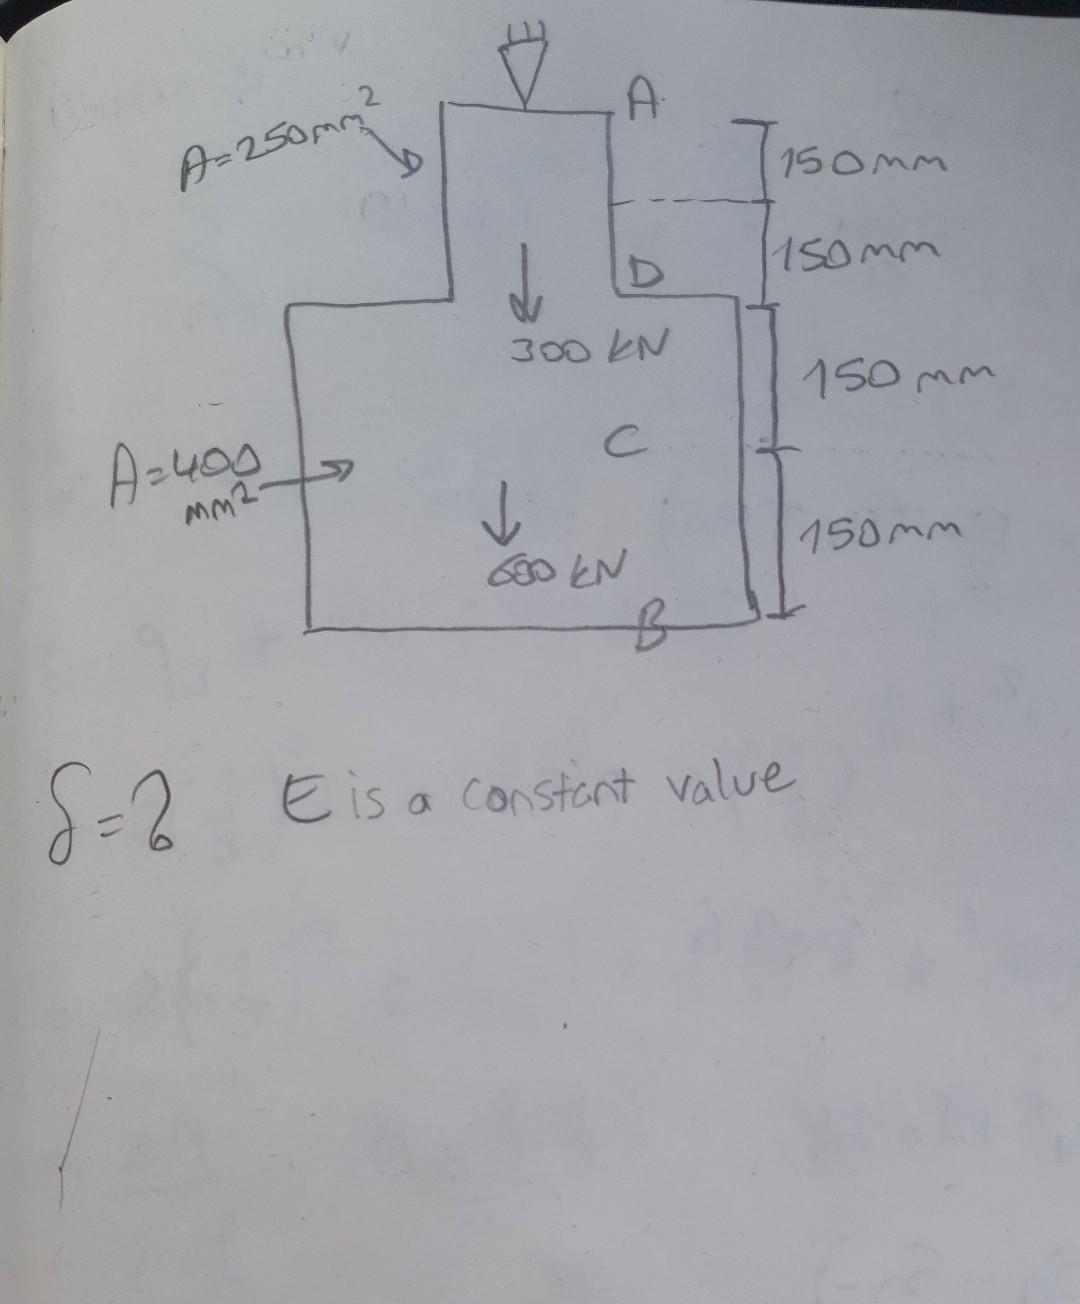 A
A=250mm²
150mm
150mm
D
300 kN
150mm
C
A=400
mm²
150mm
600 kN
B
δ=? E is a constant value